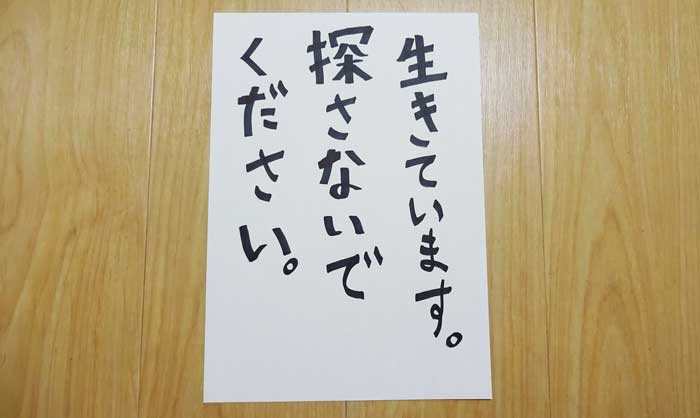 生きています。
探さないで
ください。